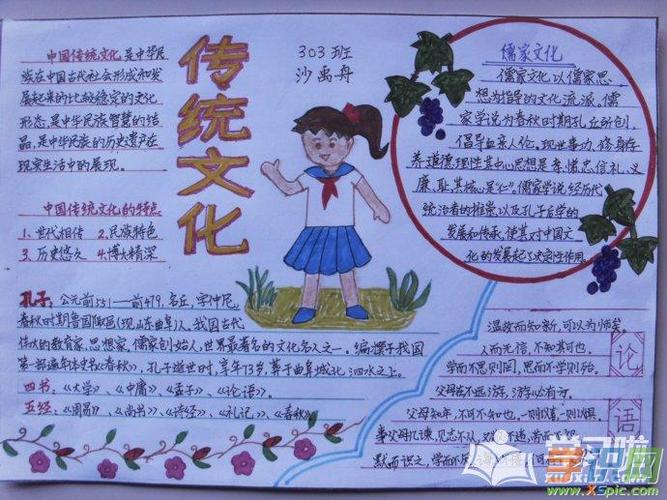 传统文化
303班
沙禹舟
中国传统文化是中华民
族在中国古代社会形成和发
展起来的比较稳定的文化
形态,是中华民族智慧的结
晶,是中华民族的历史遗产在
现实生活中的展现。
中国传统文化的特点
1、世代相传 2.民族特色
3、历史悠久 4.博大精深
儒家文化
儒家文化以儒家思
想为指导的文化流派。儒
家学说为春秋时期孔丘所创,
倡导血亲人伦、现世事功、修身存
养、道德理性其中心思想是孝、悌、忠、信、礼、义
廉、耻,其核心是“仁”。儒家学说经历代
统治者的推崇,以及孔子后学的
发展和传承,使其对中国文
化的发展起了决定性作用
孔子:公元前551——前479,名丘,字仲尼,
春秋时期鲁国陬邑(现山东曲阜)人、我国古代
伟大的教育家、思想家,儒家创始人,世界最著名的文化名人之一。编撰了我国
第一部编年体史书《春秋》,孔子逝世时,享年73岁,葬于曲阜城北泗水之上。
四书:《大学》、《中庸》、《孟子》、《论语》。
五经:《周易》、《尚书》、《诗经》、《礼记》、《春秋》
论语
温故而知新,可以为师矣。
人而无信,不知其可也。
学而不思则罔,思而不学则殆。
父母在不远游,游必有方。
父母之年,不可不知也,一则以喜,一则以惧
事父母几谏,见志不从,又敬不违,劳而不怨
默而识之,学而不厌
学识网
www.xspic.com